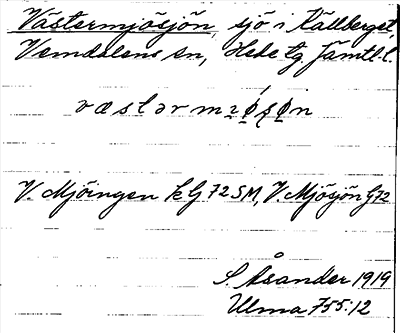 Västermjösjön, sjö i Källberget,
Vemdalens sn, Hede tg Jämtl. l.
væstərmjǿʃøn
V. Mjöingen k G 72. SM, V. Mjösjön G 72
S. Åsander 1919
Ulma 755:12